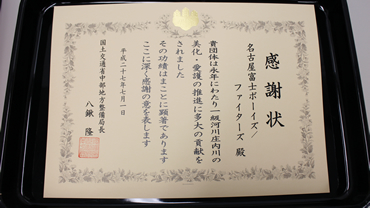 感謝状
名古屋富士ボーイズ/
ファイターズ 殿
貴団体は永年にわたり一級河川庄内川の
美化・愛護の推進に多大の貢献を
されました
その功績はまことに顕著であります
ここに深く感謝の意を表します
平成二十七年七月一日
国土交通省中部地方整備局長
八鍬 隆